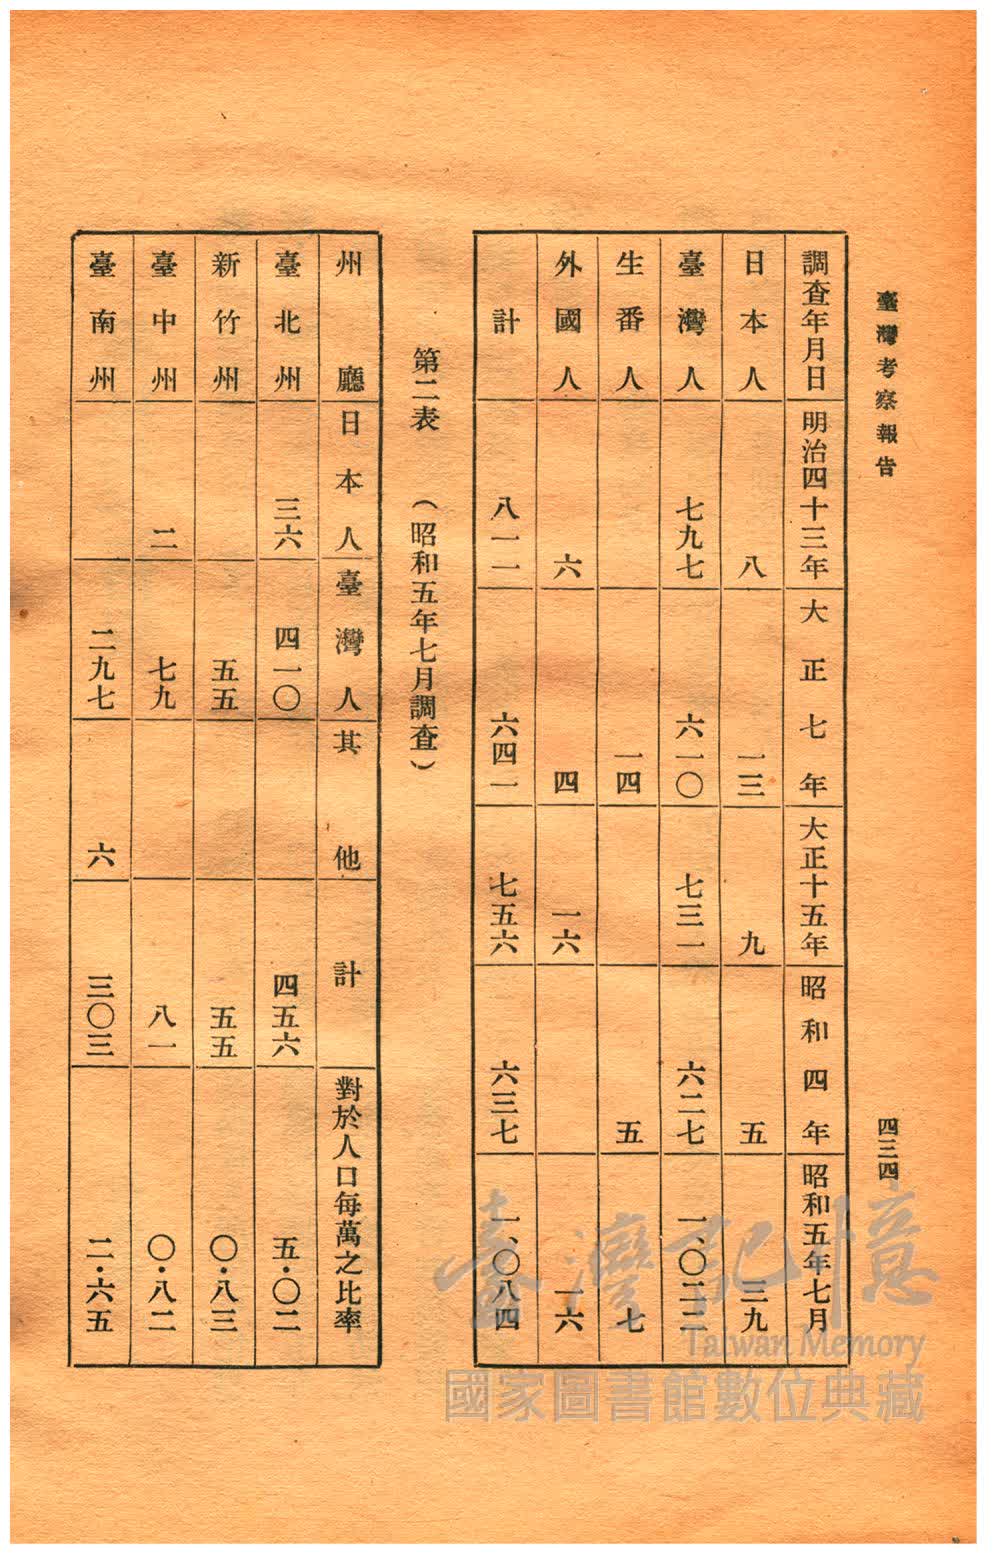 臺灣考察報告 四三四
調查年月日 明治四十三年 大正七年 大正十五年 昭和四年 昭和五年七月
日本人 八 一三 九 五 三九
臺灣人 七九七 六一〇 七三一 六二七 一、〇二二
生番人 一四 五 七
外國人 六 四 一六 一六
計 八一一 六四一 七五六 六三七 一、〇八四
第二表 （昭和五年七月調查）
州廳 日本人 臺灣人 其他 計 對於人口每萬之比率
臺北州 三六 四一〇 四五六 五・〇二
新竹州 五五 五五 〇・八三
臺中州 二 七九 八一 〇・八二
臺南州 二九七 六 三〇三 二・六五
臺灣記憶
Taiwan Memory
國家圖書館數位典藏